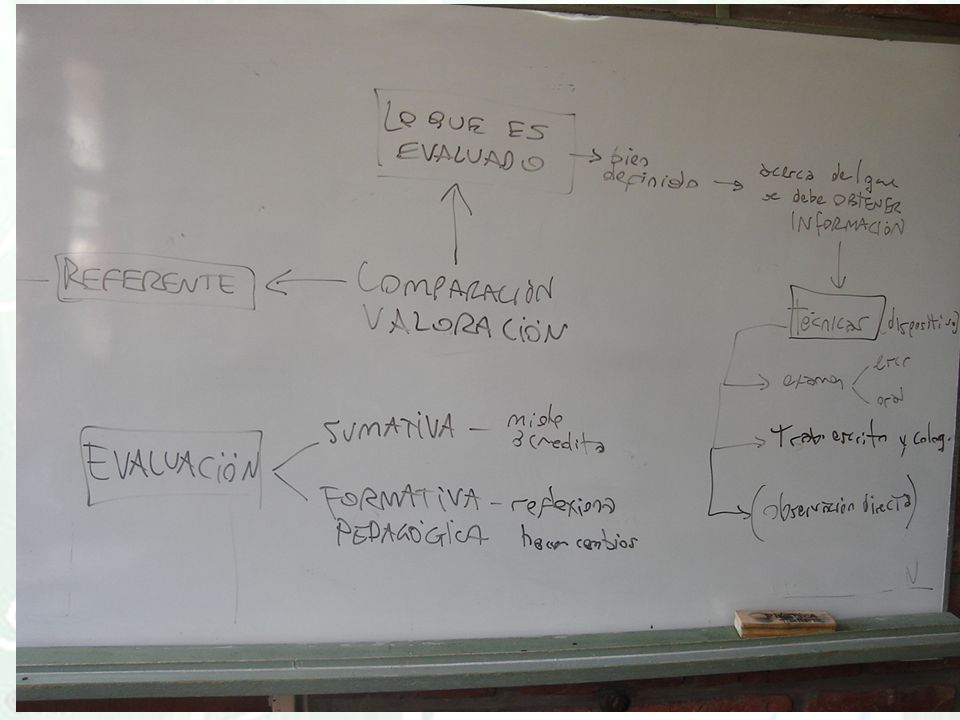 LO QUE ES
EVALUADO
bien
definido
acerca de lo que
se debe OBTENER
INFORMACIÓN
REFERENTE
COMPARACIÓN
VALORACIÓN
técnicas (dispositivos)
examen
escr
oral
Trab. escrito y coloq.
(observación directa)
EVALUACIÓN
SUMATIVA – mide
acredita
FORMATIVA – reflexiona
PEDAGÓGICA hacer cambios